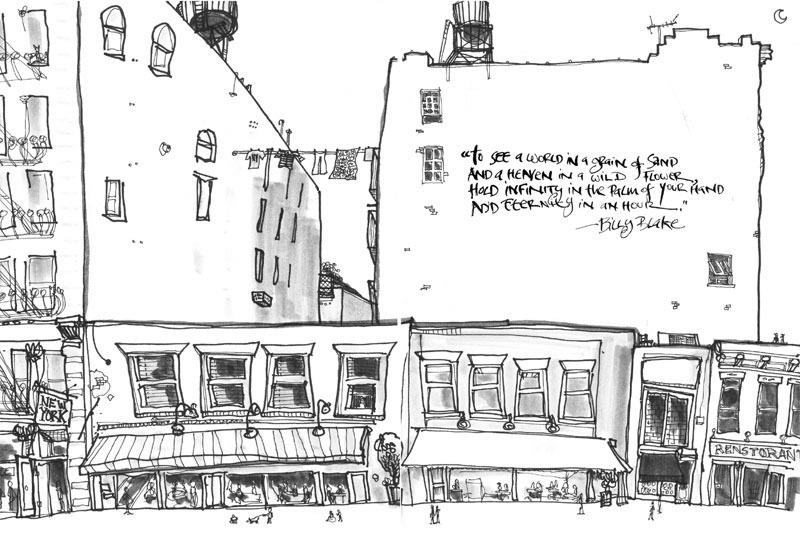 "To SEE A WORLD IN A grain of SAND
AND A HEAVEN IN A WILD FLOWER,
HOLD INFINITY IN THE PALM of YOUR HAND
AND ETERNITY IN AN HOUR."
—Billy Blake
NEW
YORK
RENSTORANT